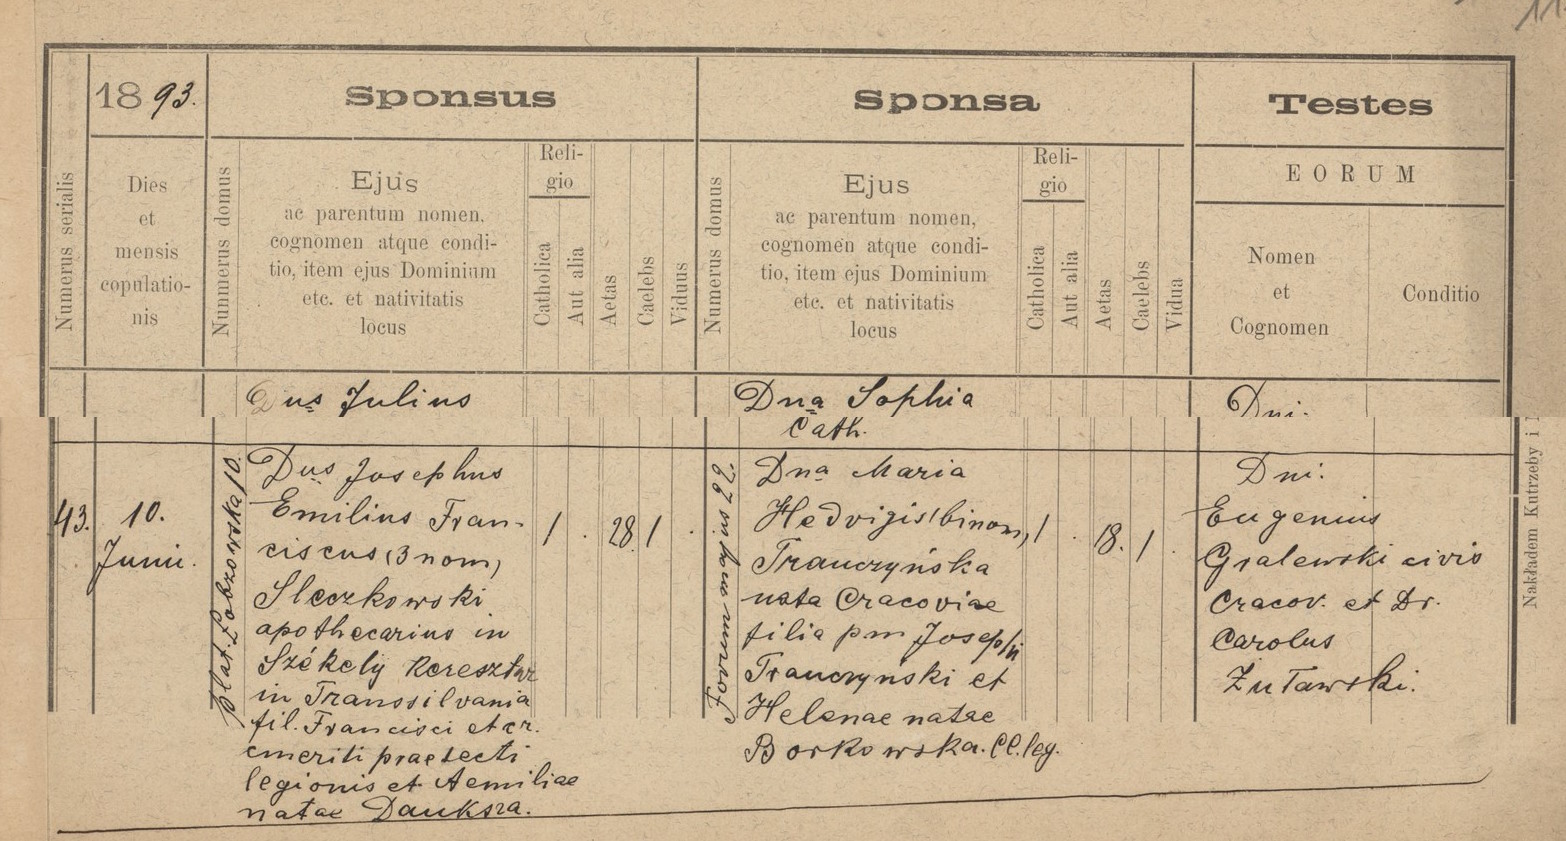 11
1893.
Sponsus
Sponsa
Testes
Numerus serialis
Dies
et
mensis
copulatio-
nis
Nunmerus domus
Ejus
ac parentum nomen,
cognomen atque condi-
tio, item ejus Dominium
etc. et nativitatis
locus
Reli-
gio
Catholica
Aut alia
Aetas
Caelebs
Viduus
Numerus domus
Ejus
ac parentum nomen,
cognomen atque condi-
tio, item ejus Dominium
etc. et nativitatis
locus
Reli-
gio
Catholica
Aut alia
Aetas
Caelebs
Vidua
EORUM
Nomen
et
Cognomen
Conditio
Dus Julius
Dna Sophia
Cath.
Dni.
43.
10.
Junii.
plat. Łobzowska 10.
Dus Josephus
Emilius Fran-
ciscus (3 nom)
Sleczkowski
apothecarius in
Székely Keresztur
in Transsilvania
fil. Francisci et cr.
emeriti praefecti
legionis et Aemiliae
natae Dauksza.
1
28.
1
Forum magnus 22.
Dna Maria
Hedvigis (binom)
Trauczyńska
nata Cracoviae
filia pm Josephi
Trauczynski et
Helenae natae
Borkowska. CC. leg.
1
18.
1
Dni.
Eugenius
Gralewski civis
Cracov. et Dr.
Carolus
Żuławski.
Nakładem Kutrzeby i